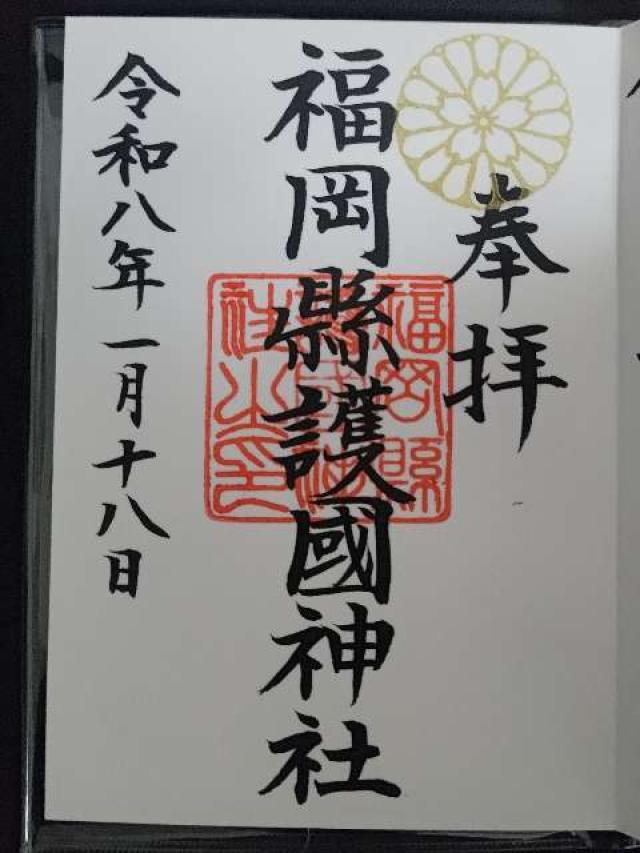 奉拝
福岡縣護國神社
福岡縣
護國神
社之印
令和八年一月十八日